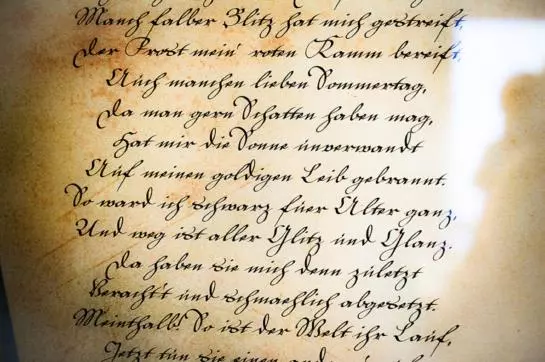 Manch falber Blitz hat mich gestreift,
Der Frost mein' roten Kamm bereift,
Auch manchen lieben Sommertag,
Da man gern Schatten haben mag,
Hat mir die Sonne unverwandt
Auf meinen goldigen Leib gebrannt.
So ward ich schwarz fuer Alter ganz,
Und weg ist aller Glitz und Glanz.
Da haben sie mich denn zuletzt
Veracht't und schmaehlich abgesetzt.
Meinthalb! So ist der Welt ihr Lauf,
Jetzt tun sie einen